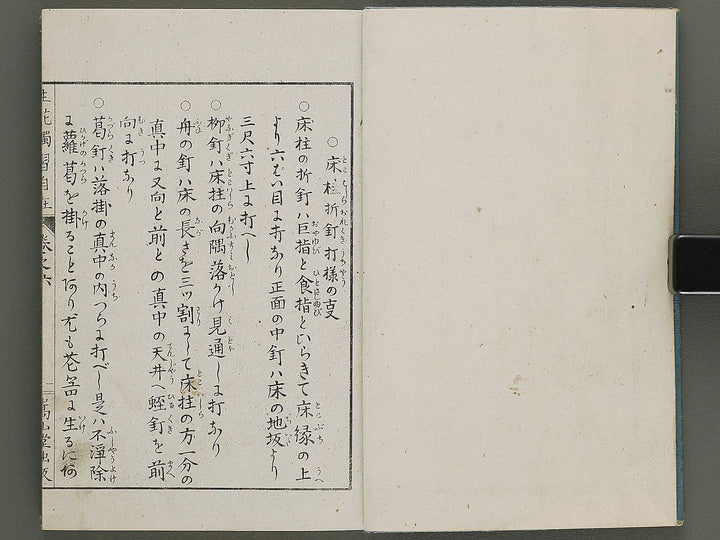 ○床柱折釘打様の事
○床柱の折釘ハ巨指と食指とひらきて床縁の上
より六ぱい目に打なり正面の中釘ハ床の地板より
三尺六寸上に打べし
○柳釘ハ床柱の向隅落かけ見通しに打なり
○舟の釘ハ床の長さを三ッ割にして床柱の方一分の
真中に又向と前との真中の天井へ蛭釘を前
向に打なり
○葛釘ハ落掛の真中の内つらに打べし是ハ不浄除
に蘿葛を掛ることあり尤も花器に生るにあ
生花獨習自在 巻之六 嵩山堂出版